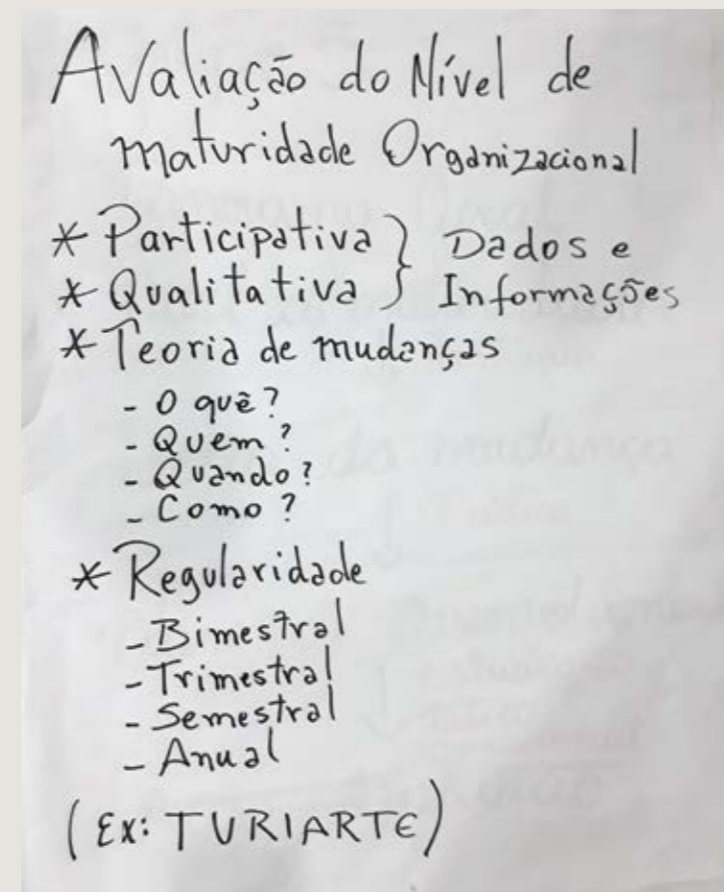 Avaliação do Nível de
maturidade Organizacional
* Participativa } Dados e
* Qualitativa } Informações
* Teoria de mudanças
- O quê?
- Quem?
- Quando?
- Como?
* Regularidade
- Bimestral
- Trimestral
- Semestral
- Anual
(Ex: TURIARTE)